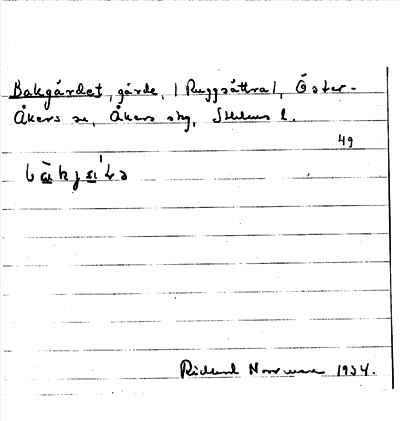 Bakgärdet, gärde, (Ruggsättra), Öster-
Åkers sn, Åkers skg, Sthlms l.
49
Rickard Norrman 1934.